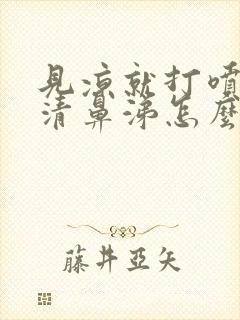 見凉就打噴
清鼻涕怎麼
藤井亞矢